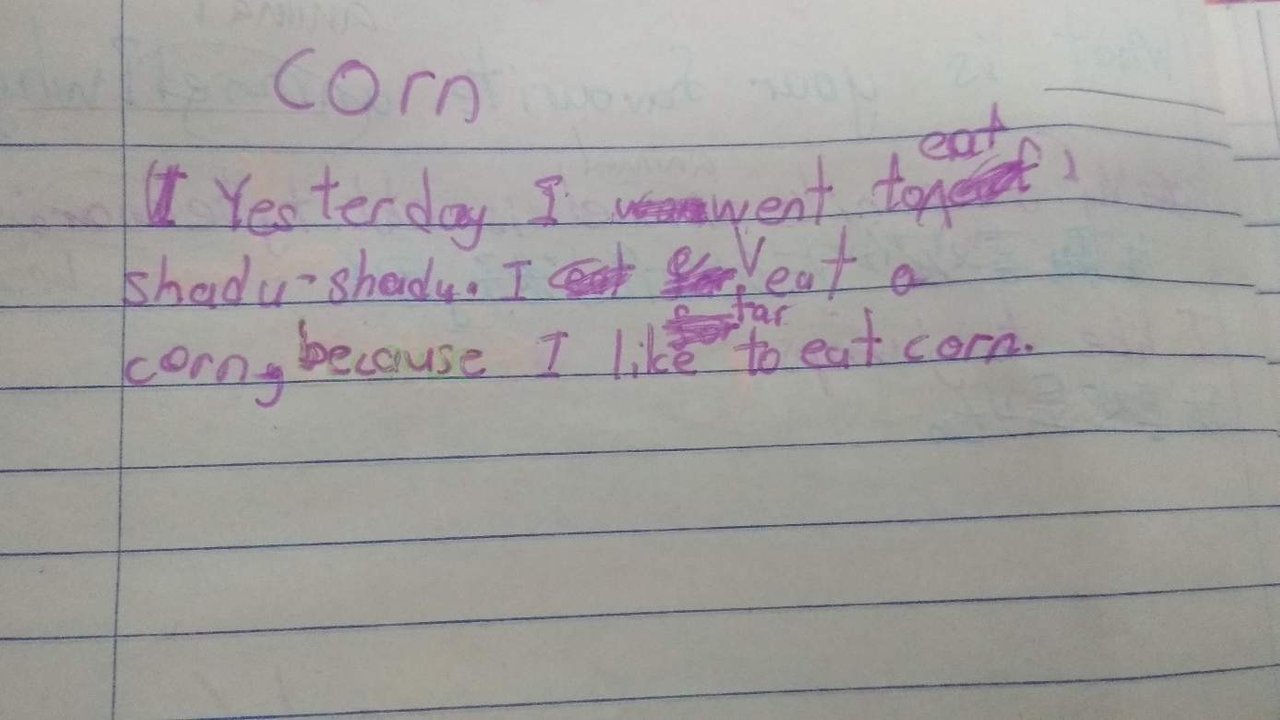 Corn
Yesterday I went to eat
shadu-shady. I eat a
corn, because I like to eat corn.